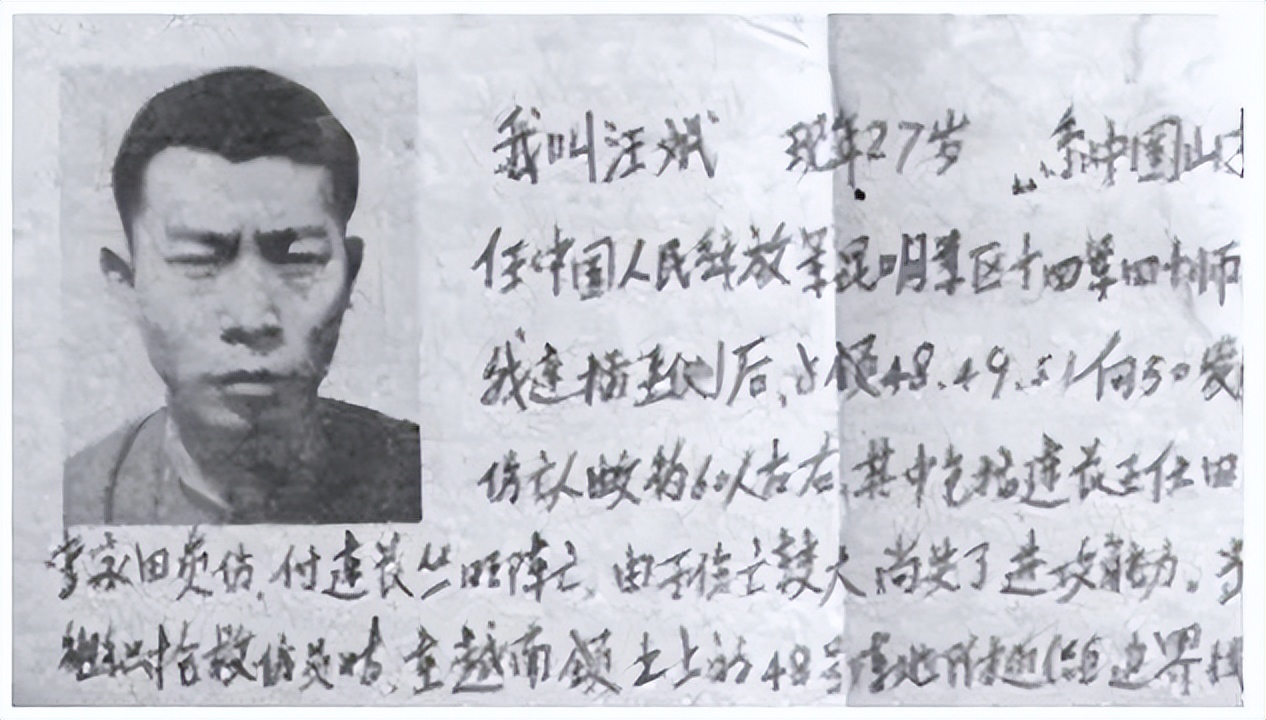 我叫汪斌 现年27岁 系中国山
任中国人民解放军昆明军区十四军四十师
我连指挥 后,占领48.49.51向50发
伤亡人数约60人左右,其中包括连长王仕田
李家田负伤,付连长丛明阵亡,由于伤亡较大,尚失了进攻能力。当
组织抢救伤员时,在越南领土上的48号阵地附近(距边界线